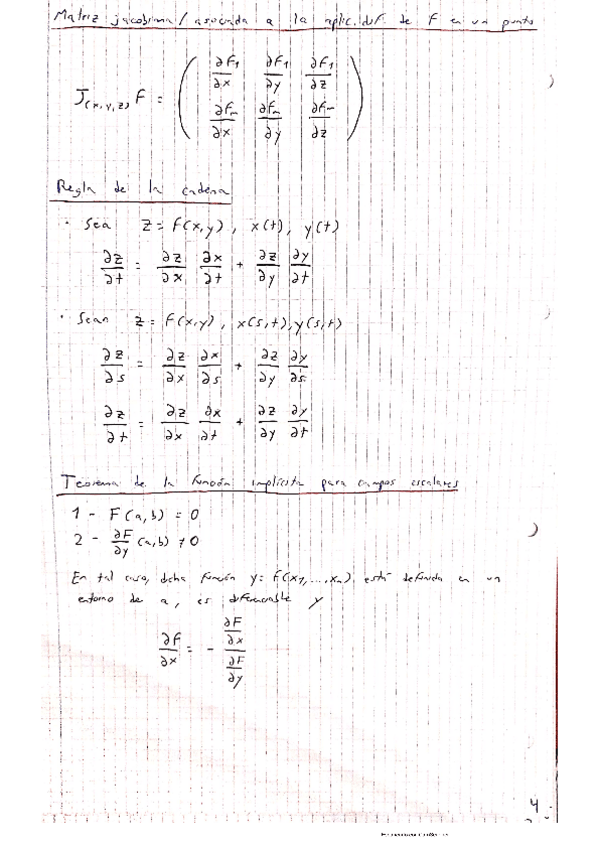 Matriz jacobiana / asociada a la aplic. dif. de F en un punto
J(x,y,z) F = ( ∂F1/∂x ∂F1/∂y ∂F1/∂z
∂Fm/∂x ∂Fm/∂y ∂Fm/∂z )
Regla de la cadena
· Sea z = f(x,y), x(t), y(t)
∂z/∂t = ∂z/∂x ∂x/∂t + ∂z/∂y ∂y/∂t
· Sean z = f(x,y), x(s,t), y(s,t)
∂z/∂s = ∂z/∂x ∂x/∂s + ∂z/∂y ∂y/∂s
∂z/∂t = ∂z/∂x ∂x/∂t + ∂z/∂y ∂y/∂t
Teorema de la función implícita para campos escalares
1 - F(a,b) = 0
2 - ∂F/∂y (a,b) ≠ 0
En tal caso, dicha función y = f(x1,...,xn) está definida en un
entorno de a, es diferenciable y
∂f/∂x = - (∂F/∂x)/(∂F/∂y)
4